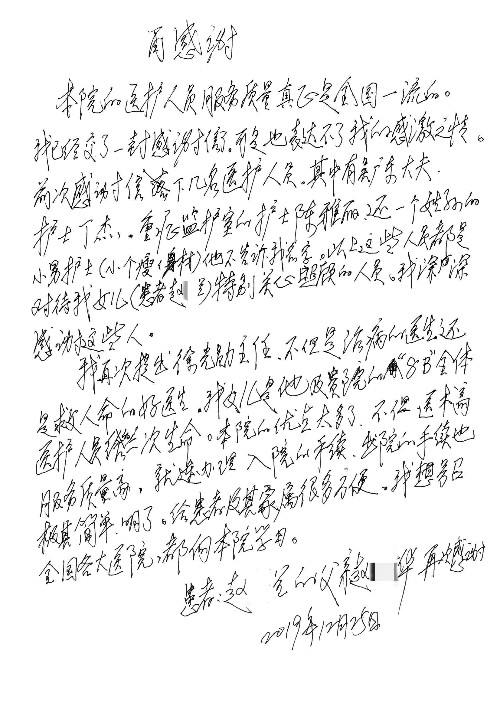 再感谢
本院的医护人员服务质量真正是全国一流的。
我已经交了一封感谢信，可是也表达不了我的感激之情。
前次感谢信落下几名医护人员。其中有 大夫.
护士丁杰。重症监护室的护士陈雅丽还一个姓孙的
小男护士(小个瘦身材)他不告诉我名字。以上这些人员都是
对待我女儿(患者赵 )特别关心照顾的人员。我深深
感谢这些人。
我再次提出徐 主任、不但是治病的医生还
是救人命的好医生。我女儿是他及贵院的 全体
医护人员给 次生命。本院的优点太多、不但医术高
服务质量高，就连办理入院的手续、出院的手续也
极其简单、明了。给患者及其家属很多方便。我想号召
全国各大医院、都向本院学习。
患者:赵 的父亲赵 华再次感谢
2019年12月25日